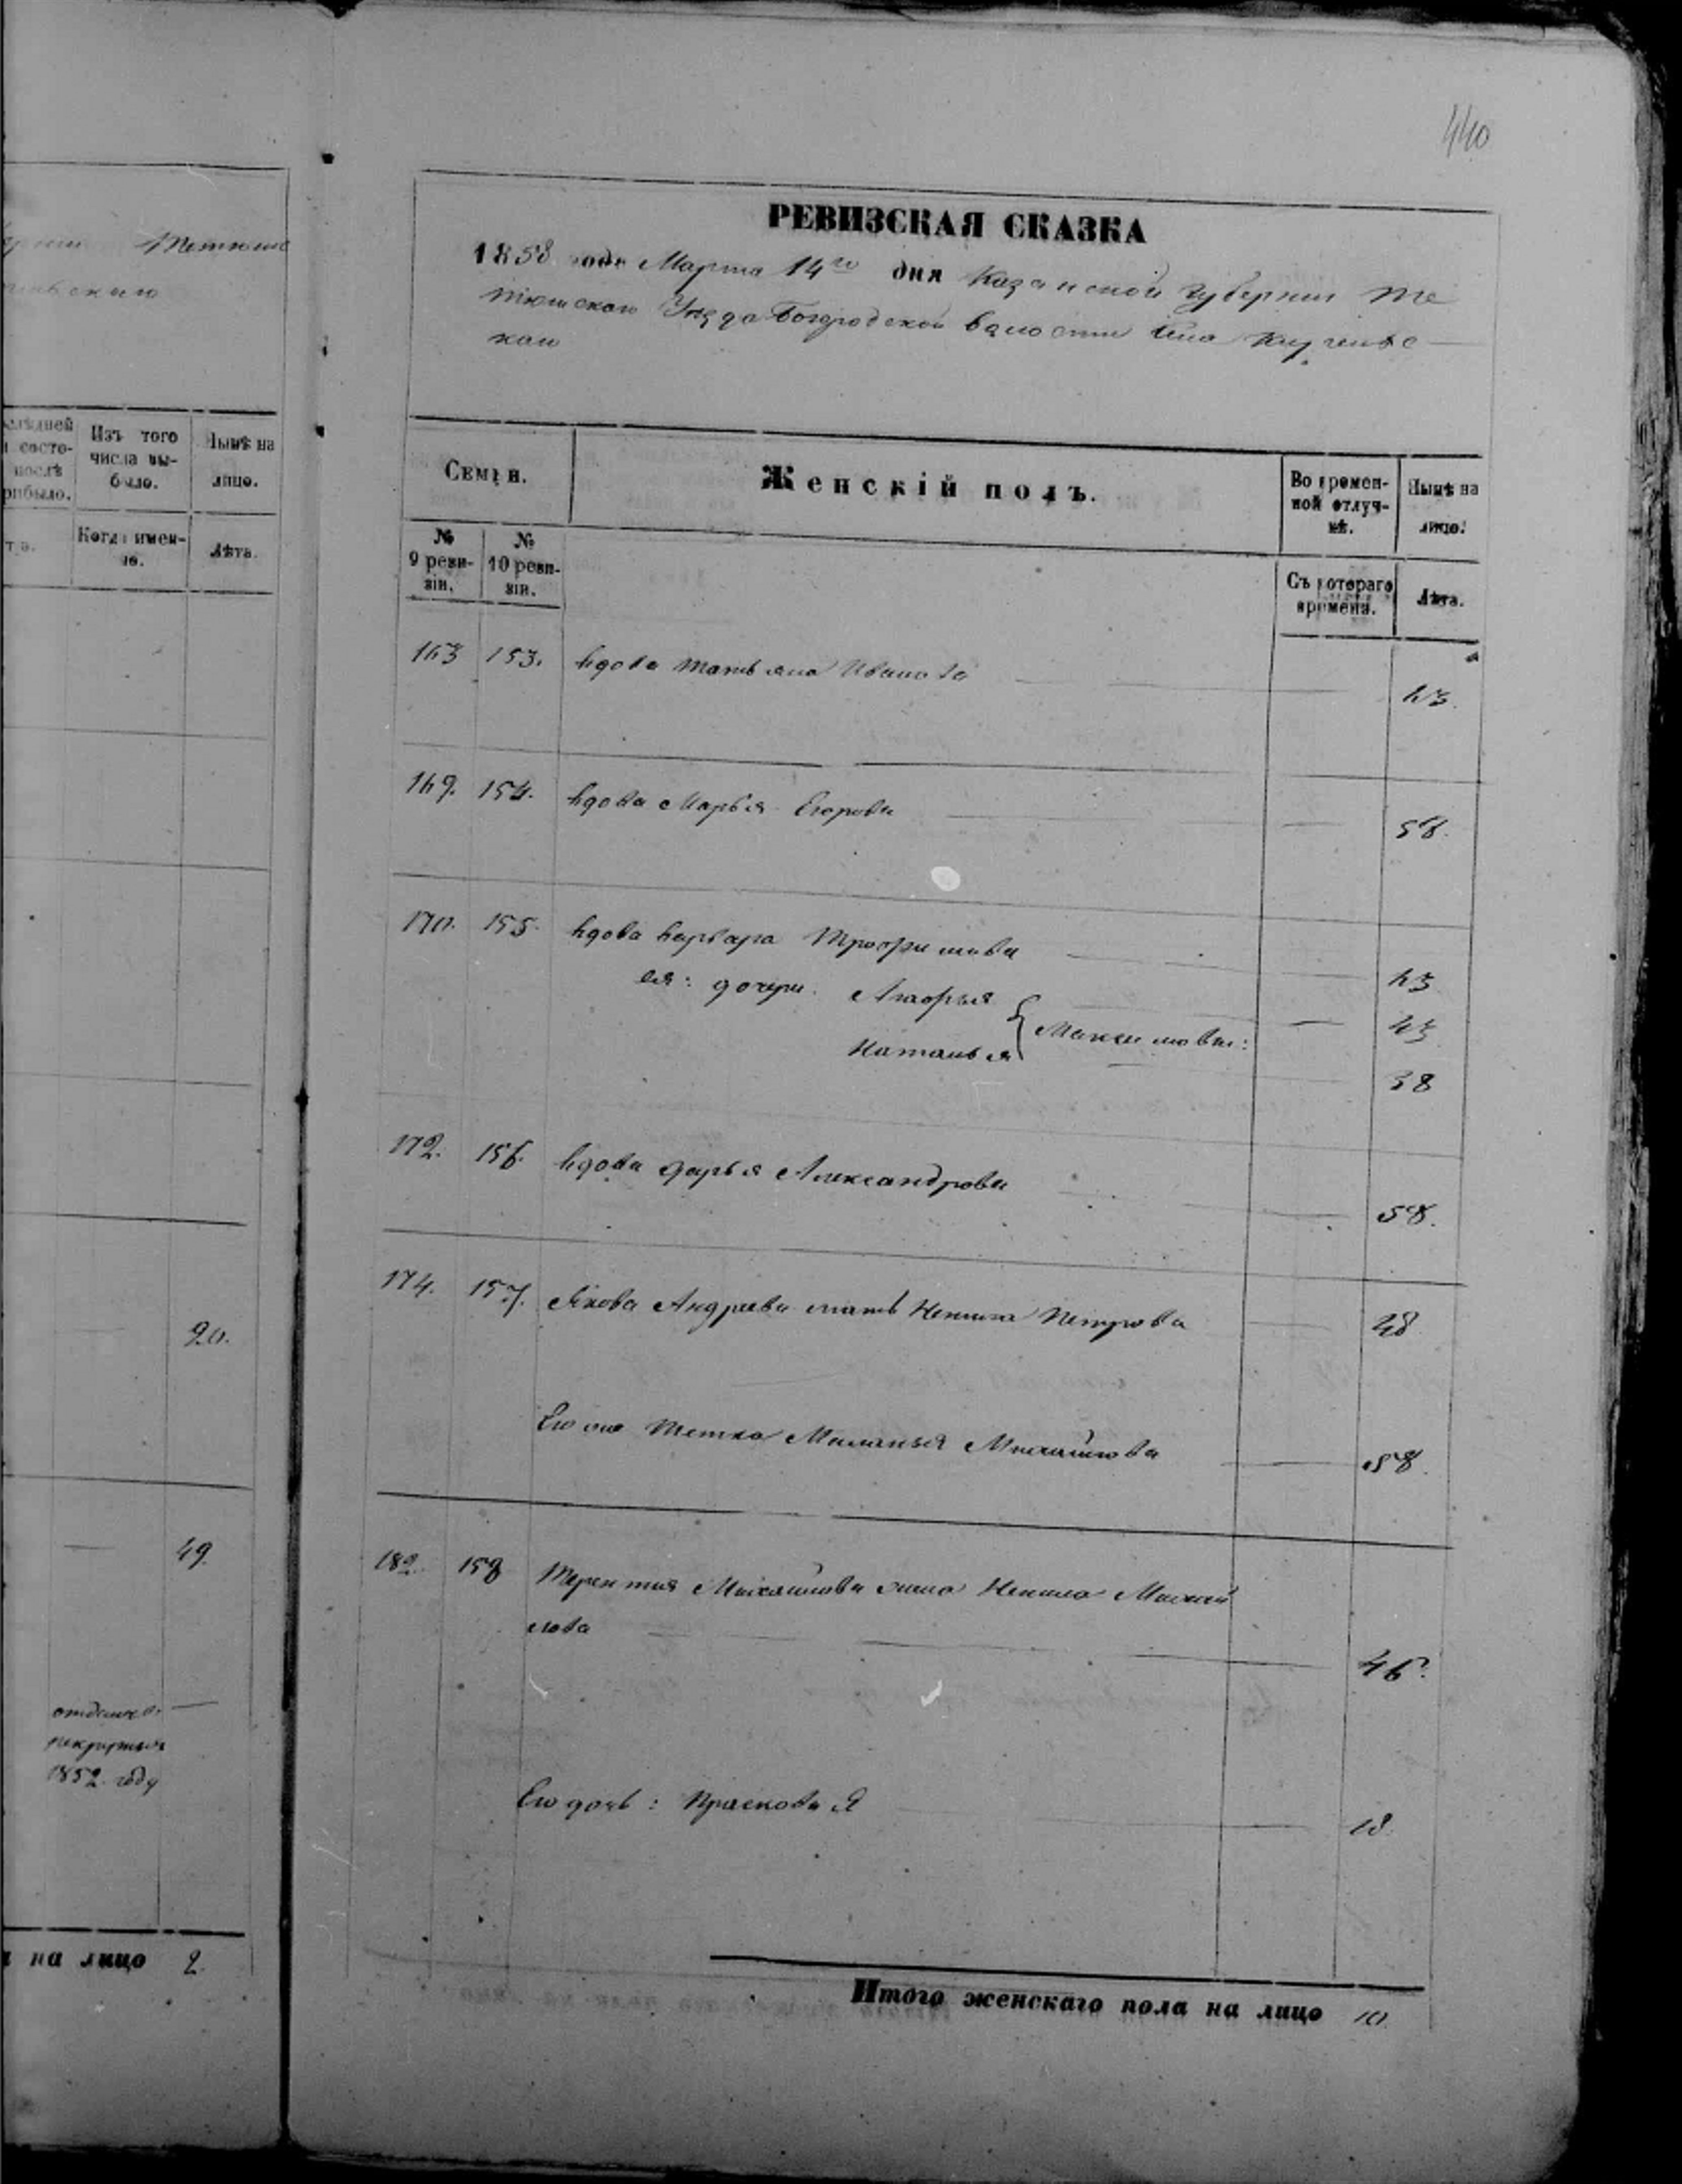 440
Тетюш
РЕВИЗСКАЯ СКАЗКА
1858 года Марта 14го дня Казанской Губерніи Те
тюшскаго Уѣзда Богородской волости Села
каго
Семьи.
Женскій полъ.
Во времен-
ной отлуч-
кѣ.
Нынѣ на
лицо.
№
9 реви-
зіи.
№
10 реви-
зіи.
Съ котораго
времена.
Лѣта.
163 153. Вдова Татьяна Иванова
169. 154. Вдова Марья Егорова 58.
170. 155. Вдова Варвара Трофимова
ея: дочери. Агафья
Максимовы:
Наталья
38
172. 156. Вдова Дарья Александрова 58.
174. 157. Якова Андреева мать Ненила Петрова 48
Его тетка Миланья Михайлова 58.
182. 158 Терентія Михайлова жена Ненила Михай
лова 46.
Его дочь: Прасковья 18.
Итого женскаго пола на лицо 10.
слѣдней
состо-
послѣ
рибыло.
Изъ того
числа вы-
было.
Нынѣ на
лицо.
Когда имен-
но.
Лѣта.
20.
49.
рекруты
1852 году
на лицо 2.